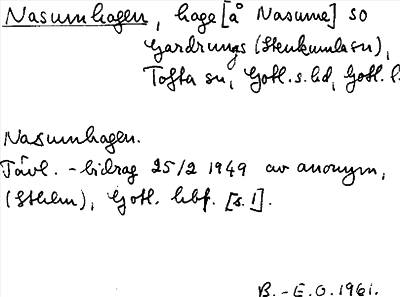 Nasumhagen, hage [å Nasume] SO
Gardrungs (Stenkumla sn),
Tofta sn, Gotl. s. hd, Gotl. l.
Nasumhagen.
Tävl.-bidrag 25/2 1949 av anonym,
(Sthlm), Gotl. hbf. [s. 1].
B.-E.O. 1961.